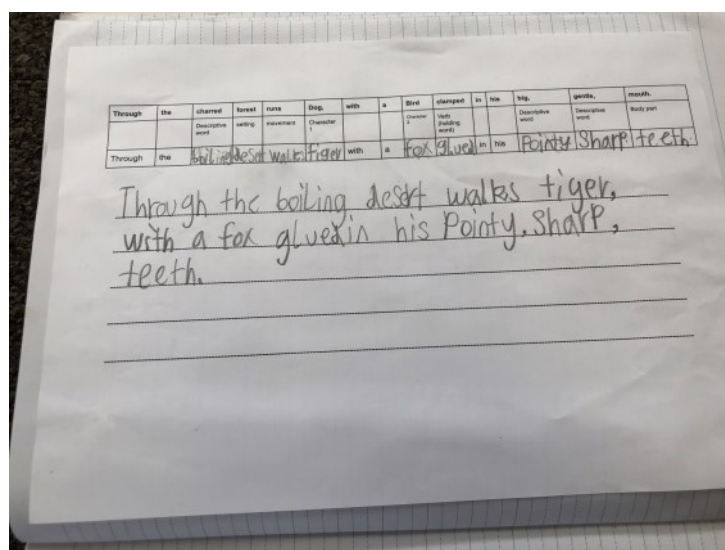 Through the charred forest runs Dog, with a Bird clamped in his big, gentle, mouth.
Descriptive word setting movement Character 1 Character 2 Verb (holding word) Descriptive word Descriptive word Body part
Through the boiling desert walks tiger with a fox glued in his Pointy Sharp teeth.
Through the boiling desert walks tiger,
with a fox glued in his Pointy, Sharp,
teeth.